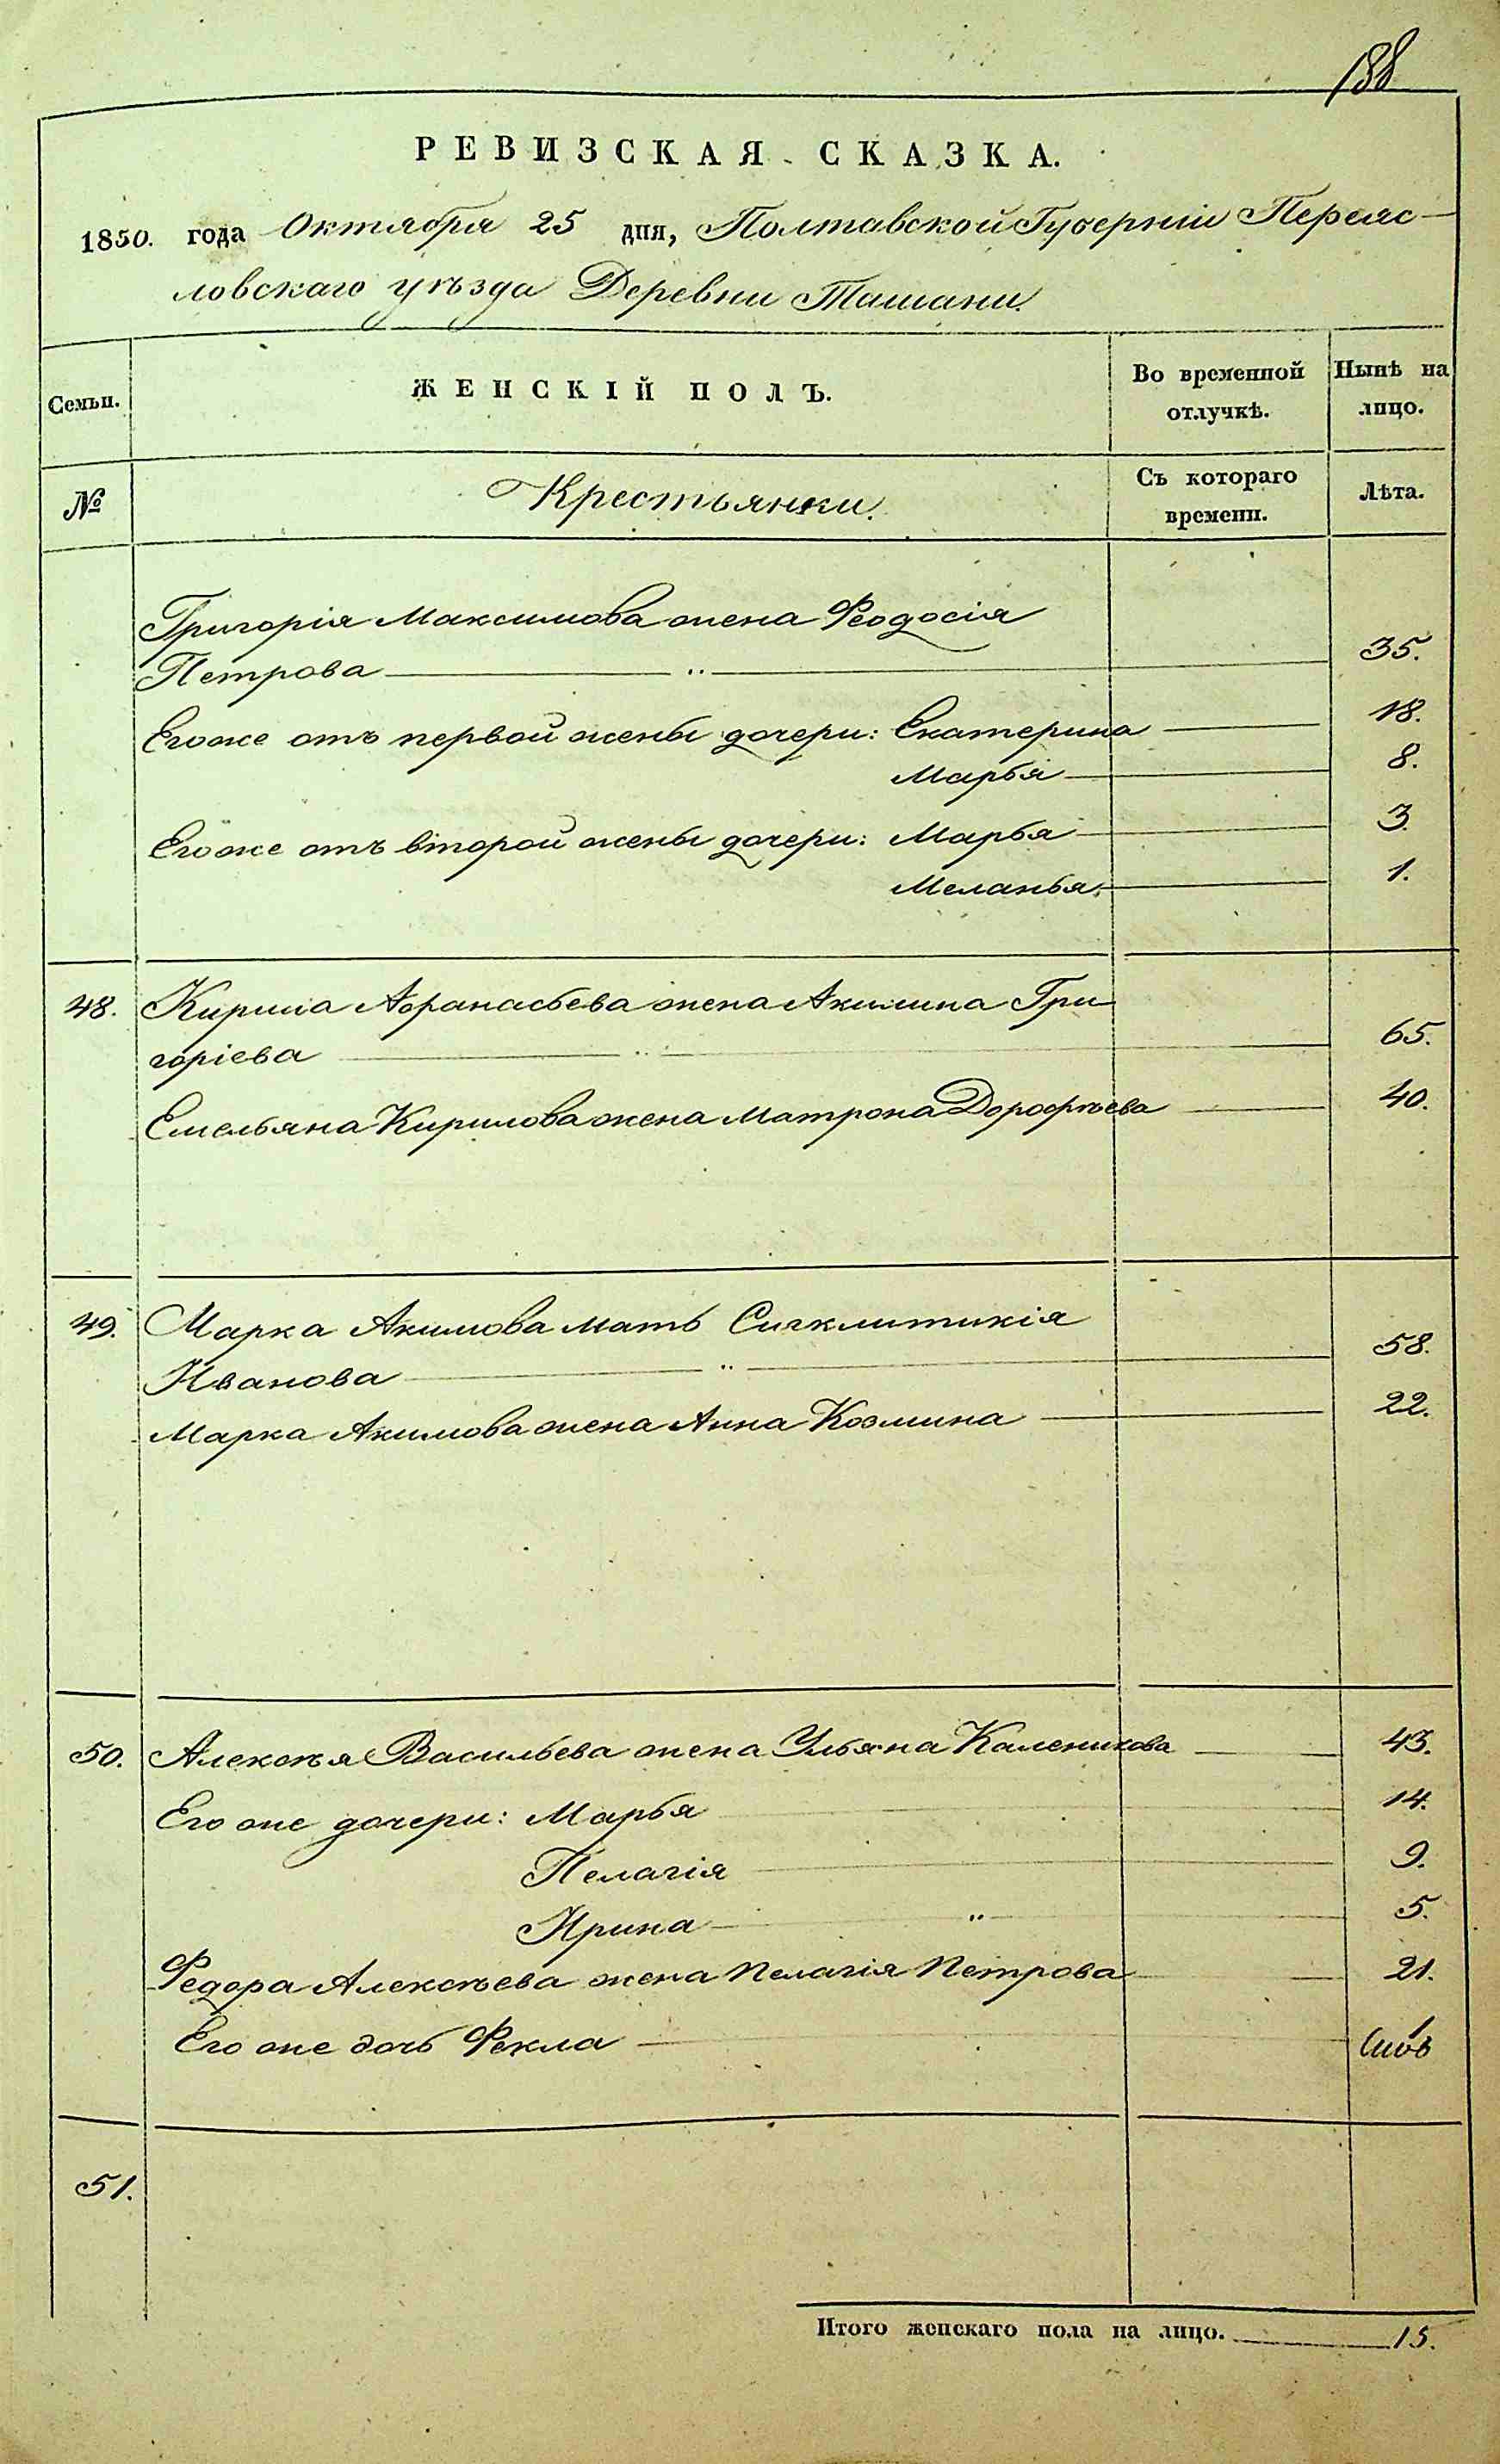 188
РЕВИЗСКАЯ СКАЗКА.
1850. года Октября 25 дня, Полтавской Губерніи Переяс-
ловскаго уѣзда Деревни Ташани.
Семьи. ЖЕНСКІЙ ПОЛЪ. Во временной отлучкѣ. Нынѣ на лицо.
№ Крестьянки. Съ котораго времени. Лѣта.
Григорія Максимова жена Феодосія
Петрова 35.
Его же отъ первой жены дочери: Екатерина 18.
Марья 8.
Его же отъ второй жены дочери: Марья 3.
Меланья 1.
48. Кирила Афанасьева жена Акилина Гри-
горіева 65.
Емельяна Кирилова жена Матрона Дорофѣева 40.
49. Марка Акимова мать Сигклитикія
Иванова 58.
Марка Акимова жена Анна Козмина 22.
50. Алексѣя Васильева жена Ульяна Каленикова 43.
Его же дочери: Марья 14.
Пелагія 9.
Ирина 5.
Федора Алексѣева жена Пелагія Петрова 21.
Его же дочь Фекла 1
51.
Итого женскаго пола на лицо. 15.